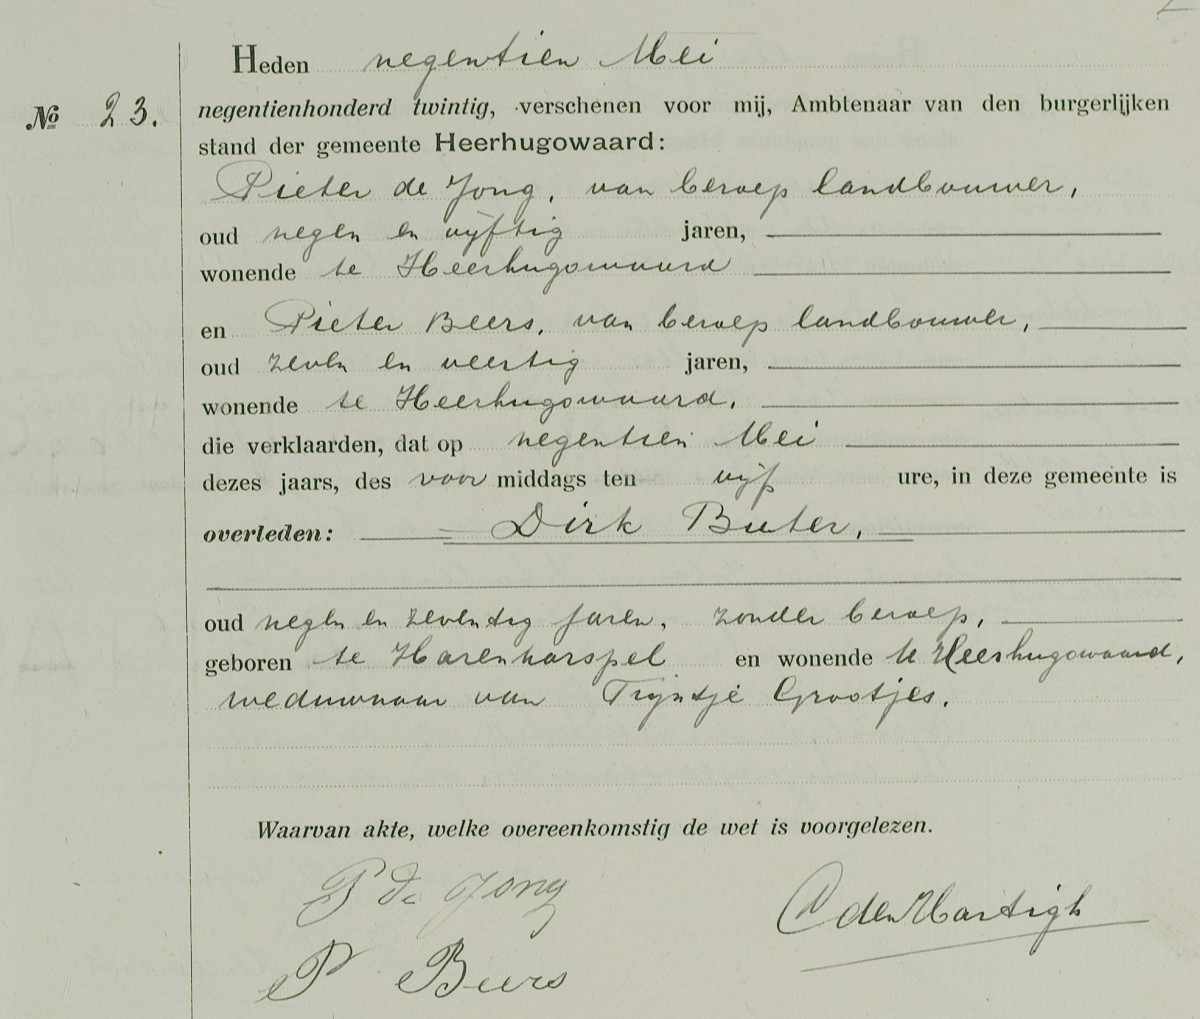 Heden negentien Mei
No 23.
negentienhonderd twintig, verschenen voor mij, Ambtenaar van den burgerlijken
stand der gemeente Heerhugowaard:
Pieter de Jong, van beroep landbouwer,
oud negen en vijftig jaren,
wonende te Heerhugowaard
en Pieter Beers, van beroep landbouwer,
oud zeven en veertig jaren,
wonende te Heerhugowaard,
die verklaarden, dat op negentien Mei
dezes jaars, des voor middags ten vijf ure, in deze gemeente is
overleden: Dirk Buter,
oud negen en zeventig jaren, zonder beroep,
geboren te Harenkarspel en wonende te Heerhugowaard,
weduwnaar van Trijntje Grootjes.
Waarvan akte, welke overeenkomstig de wet is voorgelezen.
P de Jong
C den Hartigh
P Beers